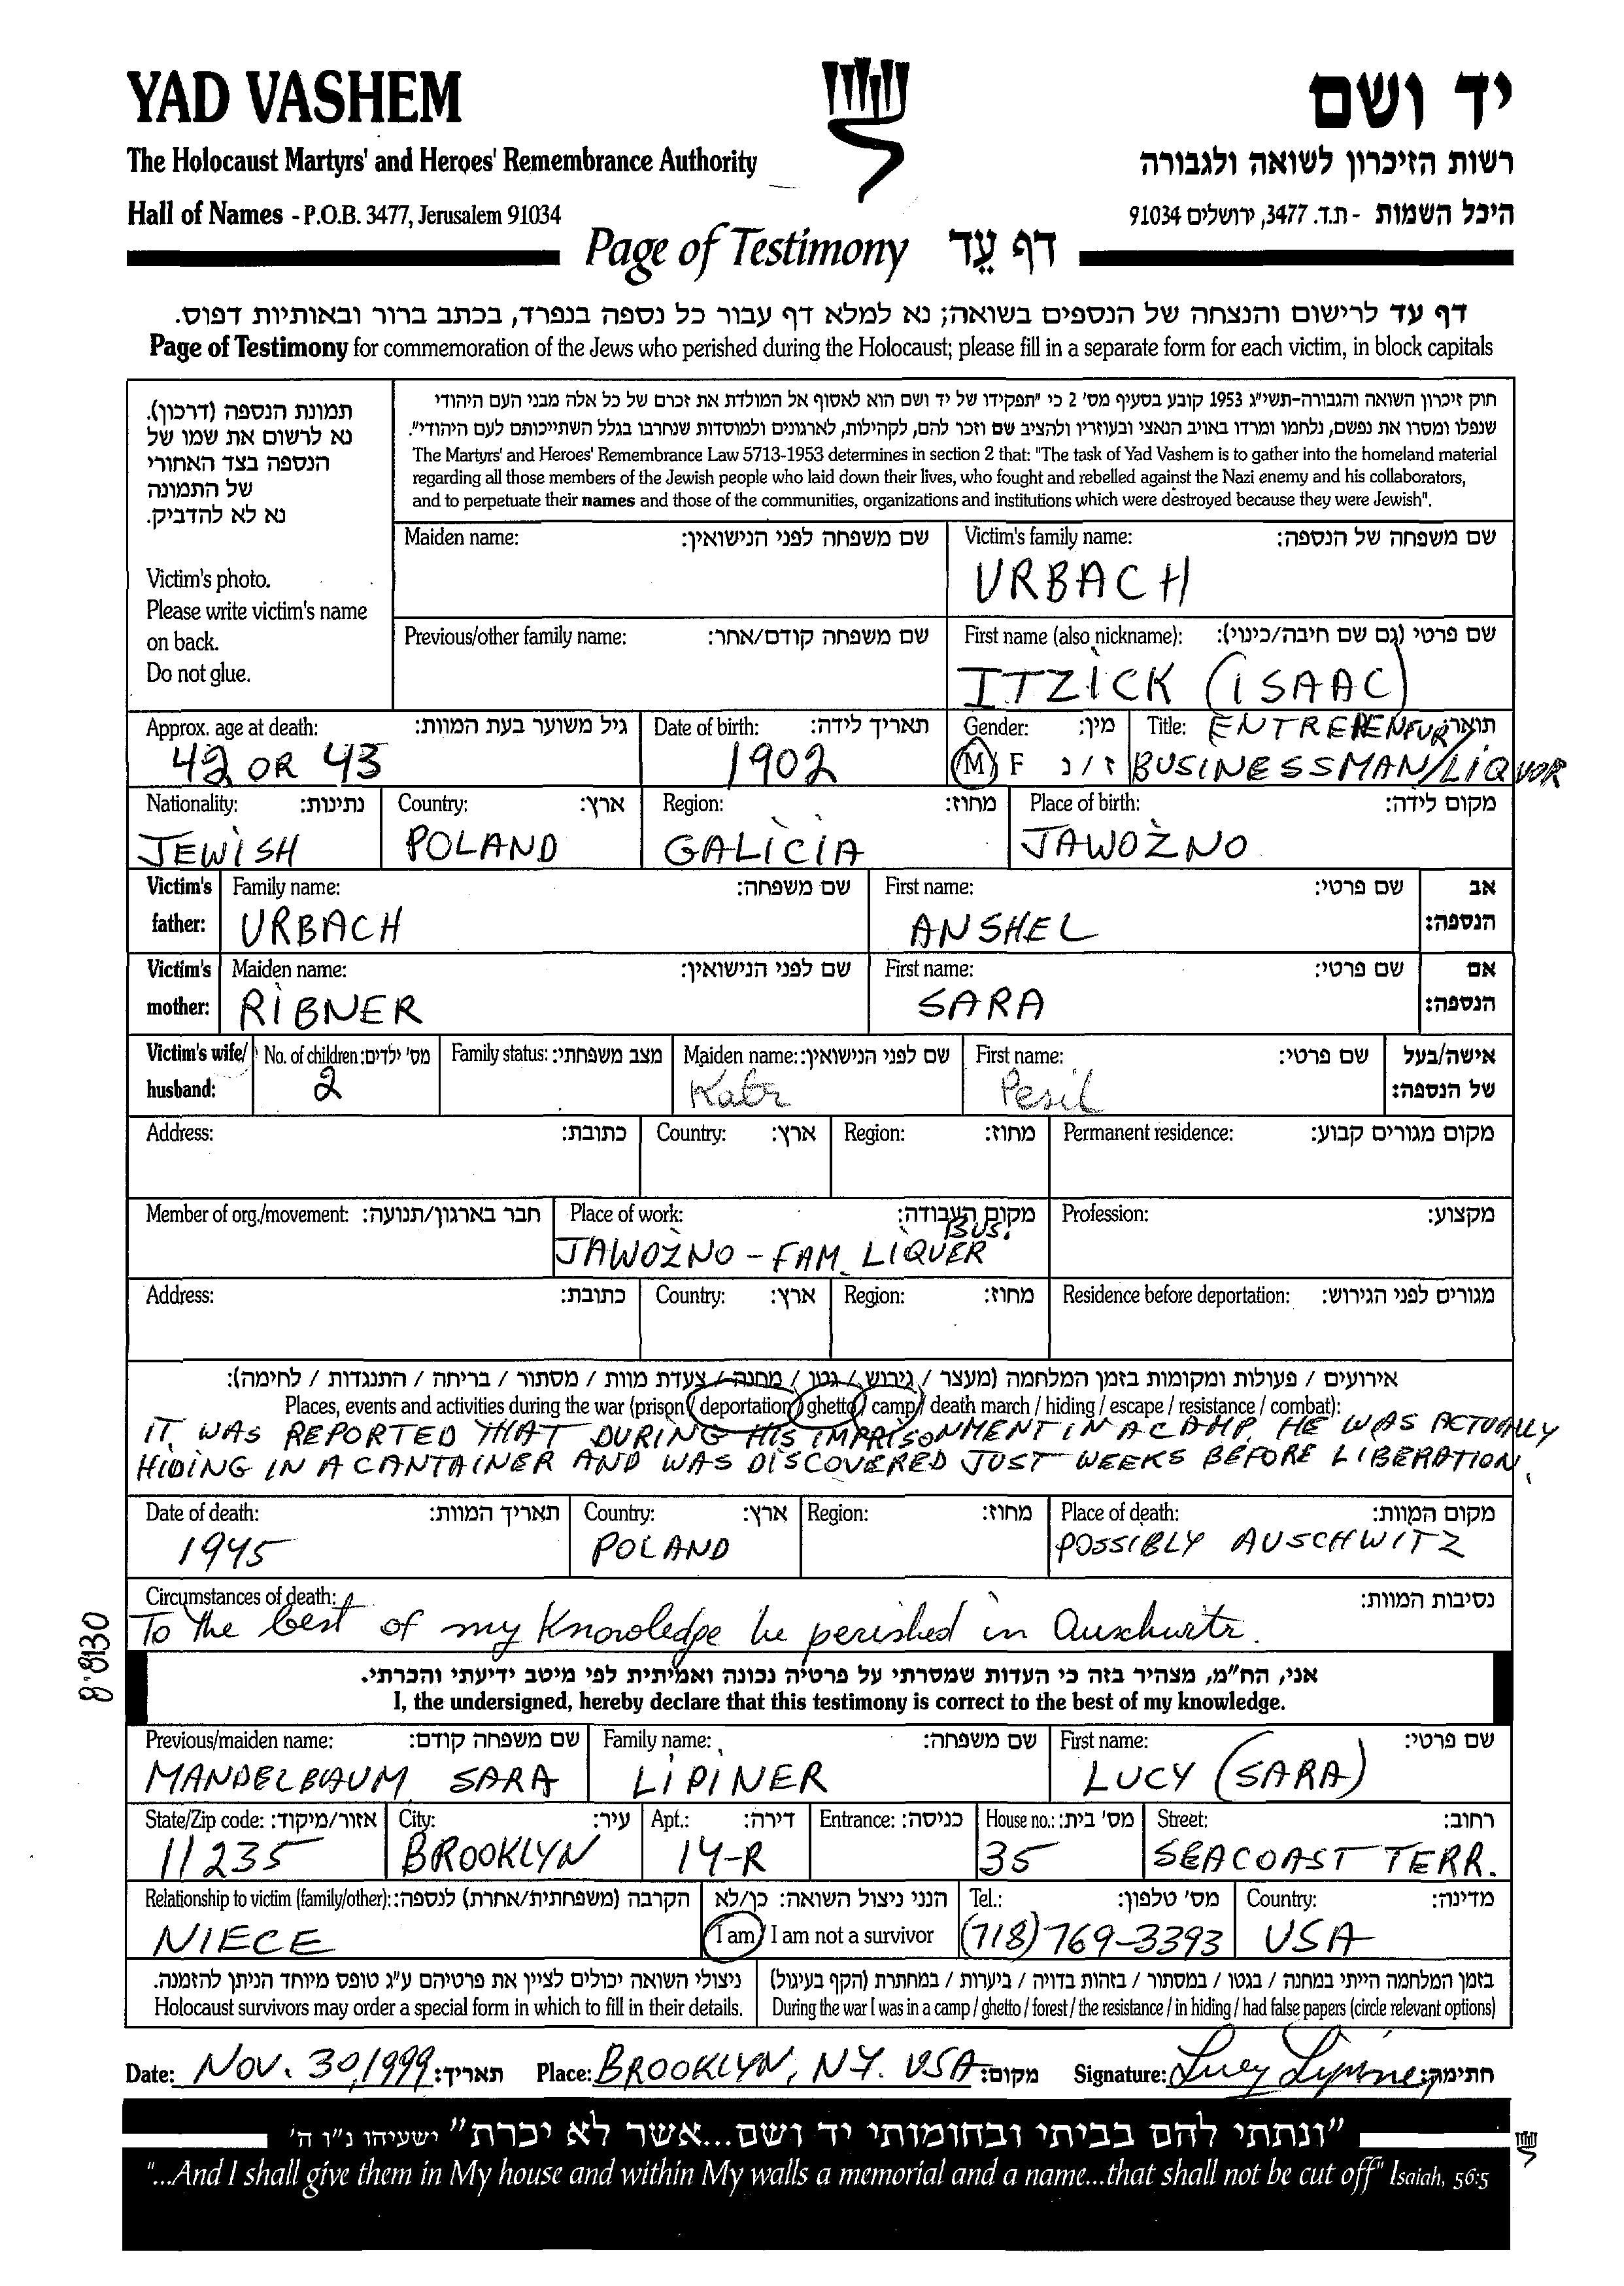 YAD VASHEM
יד ושם
The Holocaust Martyrs' and Heroes' Remembrance Authority
רשות הזיכרון לשואה ולגבורה
Hall of Names - P.O.B. 3477, Jerusalem 91034
היכל השמות - ת.ד. 3477, ירושלים 91034
Page of Testimony דף עֵד
דף עד לרישום והנצחה של הנספים בשואה; נא למלא דף עבור כל נספה בנפרד, בכתב ברור ובאותיות דפוס.
Page of Testimony for commemoration of the Jews who perished during the Holocaust; please fill in a separate form for each victim, in block capitals
תמונת הנספה (דרכון).
נא לרשום את שמו של
הנספה בצד האחורי
של התמונה
נא לא להדביק.
Victim's photo.
Please write victim's name
on back.
Do not glue.
חוק זיכרון השואה והגבורה-תשי״ג 1953 קובע בסעיף מס' 2 כי "תפקידו של יד ושם הוא לאסוף אל המולדת את זכרם של כל אלה מבני העם היהודי
שנפלו ומסרו את נפשם, נלחמו ומרדו באויב הנאצי ובעוזריו ולהציב שם וזכר להם, לקהילות, לארגונים ולמוסדות שנחרבו בגלל השתייכותם לעם היהודי".
The Martyrs' and Heroes' Remembrance Law 5713-1953 determines in section 2 that: "The task of Yad Vashem is to gather into the homeland material
regarding all those members of the Jewish people who laid down their lives, who fought and rebelled against the Nazi enemy and his collaborators,
and to perpetuate their names and those of the communities, organizations and institutions which were destroyed because they were Jewish".
Maiden name: שם משפחה לפני הנישואין:
Victim's family name: שם משפחה של הנספה:
URBACH
Previous/other family name: שם משפחה קודם/אחר:
First name (also nickname): שם פרטי (גם שם חיבה/כינוי):
ITZICK (ISAAC)
Approx. age at death: גיל משוער בעת המוות:
42 OR 43
Date of birth: תאריך לידה:
1902
Gender: מין:
M F ז / נ
Title: תואר:
ENTREPENEUR/
BUSINESSMAN/LIQUOR
Nationality: נתינות:
JEWISH
Country: ארץ:
POLAND
Region: מחוז:
GALICIA
Place of birth: מקום לידה:
JAWOŻNO
Victim's father: Family name: שם משפחה:
URBACH
First name: שם פרטי:
ANSHEL
אב הנספה:
Victim's mother: Maiden name: שם לפני הנישואין:
RIBNER
First name: שם פרטי:
SARA
אם הנספה:
Victim's wife/ husband:
No. of children: מס' ילדים:
2
Family status: מצב משפחתי:
Maiden name: שם לפני הנישואין:
Katz
First name: שם פרטי:
Pesil
אישה/בעל של הנספה:
Address: כתובת:
Country: ארץ:
Region: מחוז:
Permanent residence: מקום מגורים קבוע:
Member of org./movement: חבר בארגון/תנועה:
Place of work: מקום העבודה:
BUS.
JAWOŻNO - FAM. LIQUER
Profession: מקצוע:
Address: כתובת:
Country: ארץ:
Region: מחוז:
Residence before deportation: מגורים לפני הגירוש:
אירועים / פעולות ומקומות בזמן המלחמה (מעצר / גירוש / גטו / מחנה / צעדת מוות / מסתור / בריחה / התנגדות / לחימה):
Places, events and activities during the war (prison / deportation / ghetto / camp / death march / hiding / escape / resistance / combat):
IT WAS REPORTED THAT DURING HIS IMPRISONMENT IN A CAMP, HE WAS ACTUALLY
HIDING IN A CANTAINER AND WAS DISCOVERED JUST WEEKS BEFORE LIBERATION.
Date of death: תאריך המוות:
1945
Country: ארץ:
POLAND
Region: מחוז:
Place of death: מקום המוות:
POSSIBLY AUSCHWITZ
Circumstances of death: נסיבות המוות:
To the best of my knowledge he perished in Auschwitz.
8.8130
אני, הח״מ, מצהיר בזה כי העדות שמסרתי על פרטיה נכונה ואמיתית לפי מיטב ידיעתי והכרתי.
I, the undersigned, hereby declare that this testimony is correct to the best of my knowledge.
Previous/maiden name: שם משפחה קודם:
MANDELBAUM SARA
Family name: שם משפחה:
LIPINER
First name: שם פרטי:
LUCY (SARA)
State/Zip code: אזור/מיקוד:
11235
City: עיר:
BROOKLYN
Apt.: דירה:
14-R
Entrance: כניסה:
House no.: מס' בית:
35
Street: רחוב:
SEACOAST TERR.
Relationship to victim (family/other): הקרבה (משפחתית/אחרת) לנספה:
NIECE
הנני ניצול השואה: כן/לא
I am / I am not a survivor
Tel.: מס' טלפון:
(718) 769-3393
Country: מדינה:
USA
ניצולי השואה יכולים לציין את פרטיהם ע״ג טופס מיוחד הניתן להזמנה.
Holocaust survivors may order a special form in which to fill in their details.
בזמן המלחמה הייתי במחנה / בגטו / במסתור / בזהות בדויה / ביערות / במחתרת (הקף בעיגול)
During the war I was in a camp / ghetto / forest / the resistance / in hiding / had false papers (circle relevant options)
Date: NOV. 30, 1999 תאריך: Place: BROOKLYN, N.Y. USA מקום: Signature: Lucy Lipiner חתימה:
"ונתתי להם בביתי ובחומותי יד ושם...אשר לא יכרת" ישעיהו נ״ו ה'
"...And I shall give them in My house and within My walls a memorial and a name...that shall not be cut off" Isaiah, 56:5